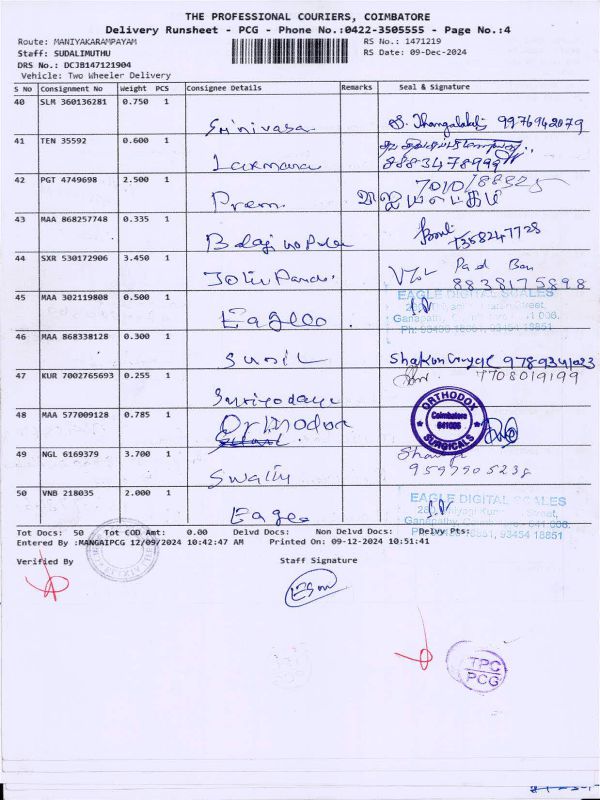 THE PROFESSIONAL COURIERS, COIMBATORE
Delivery Runsheet - PCG - Phone No.:0422-3505555 - Page No.:4
Route: MANIYAKARAMPAYAM
RS No.: 1471219
Staff: SUDALIMUTHU
RS Date: 09-Dec-2024
DRS No.: DCJB147121904
Vehicle: Two Wheeler Delivery
S No Consignment No Weight PCS Consignee Details Remarks Seal & Signature
40 SLM 360136281 0.750 1
Srinivasa 9976942079
41 TEN 35592 0.600 1
Laxmana 8883478999
42 PGT 4749698 2.500 1
Prem
43 MAA 868257748 0.335 1
Balaji 7358247728
44 SXR 530172906 3.450 1
8838175898
45 MAA 302119808 0.500 1
EAGLE DIGITAL SCALES
Eagle
Ph: 98430 18851, 98454 18851
46 MAA 868338128 0.300 1
Sunil
47 KUR 7002765693 0.255 1
7708019199
Suriyodaya
48 MAA 577009128 0.785 1
Orthodox
ORTHODOX
Coimbatore
641006
SURGICALS
49 NGL 6169379 3.700 1
Swathy
50 VNB 218035 2.000 1
EAGLE DIGITAL SCALES
Eagle
Tot Docs: 50 Tot COD Amt: 0.00 Delvd Docs: Non Delvd Docs: Delvy Pts:
Entered By :MANGAIPCG 12/09/2024 10:42:47 AM Printed On: 09-12-2024 10:51:41
Verified By
Staff Signature
TPC
PCG